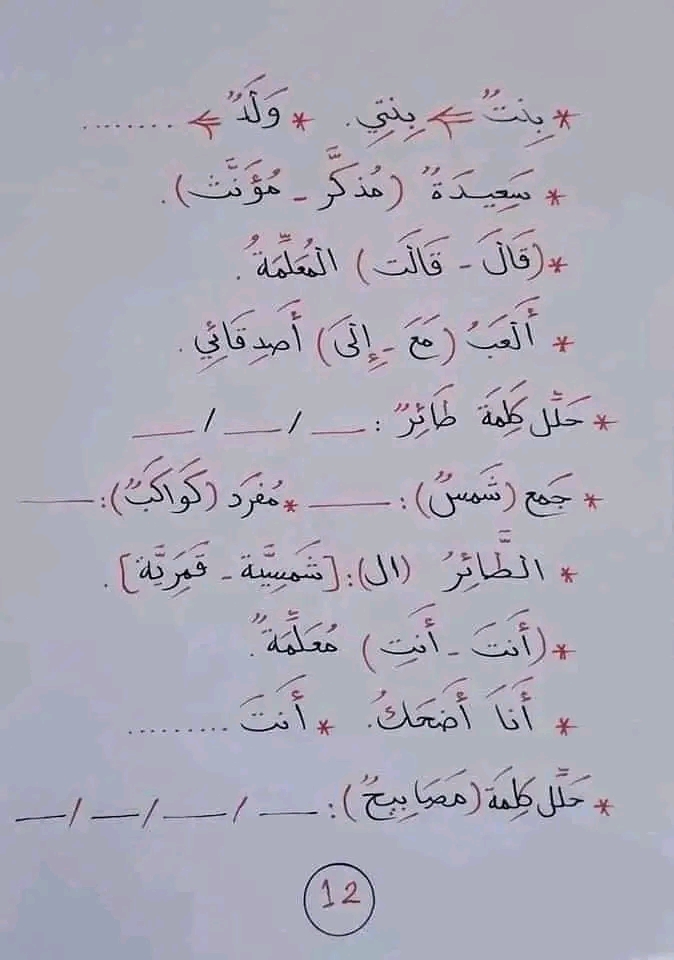 * بِنتٌ ← بِنتِي. * وَلَدٌ ← ........
* سَعِيدَةٌ (مُذَكَّر - مُؤَنَّث).
* (قَالَ - قَالَت) المُعَلِّمَةُ.
* أَلعَبُ (مَعَ - إِلَى) أَصدِقَائِي.
* حَلِّل كَلِمَة طَائِرٌ : __ / __ / __
* جَمع (شَمسٌ): ____ * مُفرَد (كَوَاكَبٌ): ____
* الطَّائِرُ (ال): [شَمسِيَّة - قَمَرِيَّة].
* (أَنتَ - أَنتِ) مُعَلِّمَةٌ.
* أَنَا أَضحَكُ. * أَنتَ .........
* حَلِّل كَلِمَة (مَصَابِيحٌ): __ / __ / __ / __
12